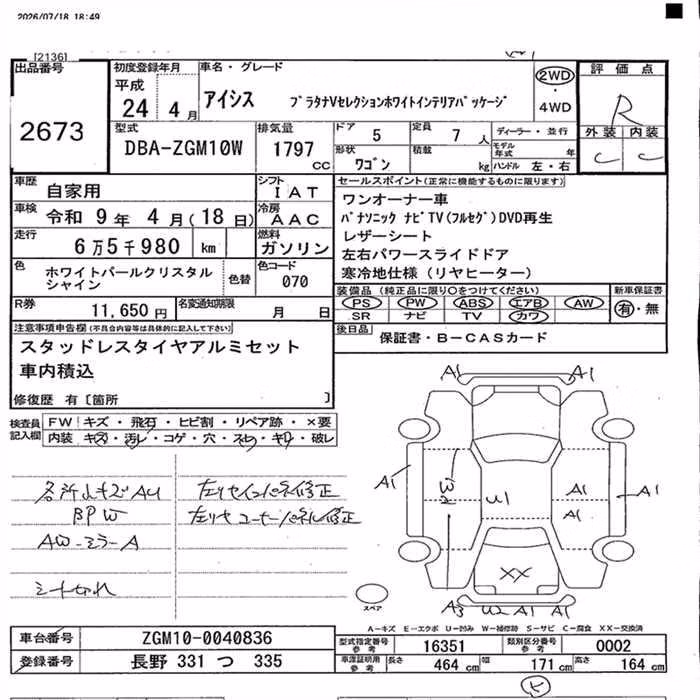 2026/07/18 18:49
[2136]
出品番号
2673
初度登録年月
平成
24 4月
車名・グレード
アイシス プラタナVセレクションホワイトインテリアパッケージ
2WD
・
4WD
評価点
R
外装 内装
C C
型式
DBA-ZGM10W
排気量
1797 CC
ドア 5
定員 7 人
形状 ワゴン
積載 kg
ディーラー・並行
モデル年式 年
ハンドル 左・右
車歴 自家用
シフト IAT
車検 令和 9年 4月(18日)
冷房 AAC
走行 6万5千980 km
燃料 ガソリン
色 ホワイトパールクリスタルシャイン
色替
色コード 070
R券 11,650円
名変通知期限 月 日
セールスポイント(正常に機能するものに限ります)
ワンオーナー車
パナソニック ナビTV(フルセグ)DVD再生
レザーシート
左右パワースライドドア
寒冷地仕様(リヤヒーター)
装備品(純正品に限り○をつけてください)
PS PW ABS エアB AW
SR ナビ TV カワ
新車保証書
有・無
後日品
保証書・B-CASカード
注意事項申告欄(不具合内容等は具体的に記入して下さい)
スタッドレスタイヤアルミセット
車内積込
修復歴 有〔箇所 〕
検査員記入欄
FW キズ・飛石・ヒビ割・リペア跡・×要
内装 キズ・汚レ・コゲ・穴・スレ・キレ・破レ
各所小キズAU
BPW
AW-ミラーA
シート切れ
左リヤインパネル修正
左リヤコーナーパネル修正
A1 A1
A1
W2
U1
A1
A1
A1
XX
A3 U2 A1 A1
スペア
A-キズ E-エクボ U-凹み W-補修跡 S-サビ C-腐食 XX-交換済
車台番号 ZGM10-0040836
登録番号 長野 331 つ 335
型式指定番号 参考 16351
類別区分番号 参考 0002
車庫証明用 参考
長さ 464 cm
幅 171 cm
高さ 164 cm